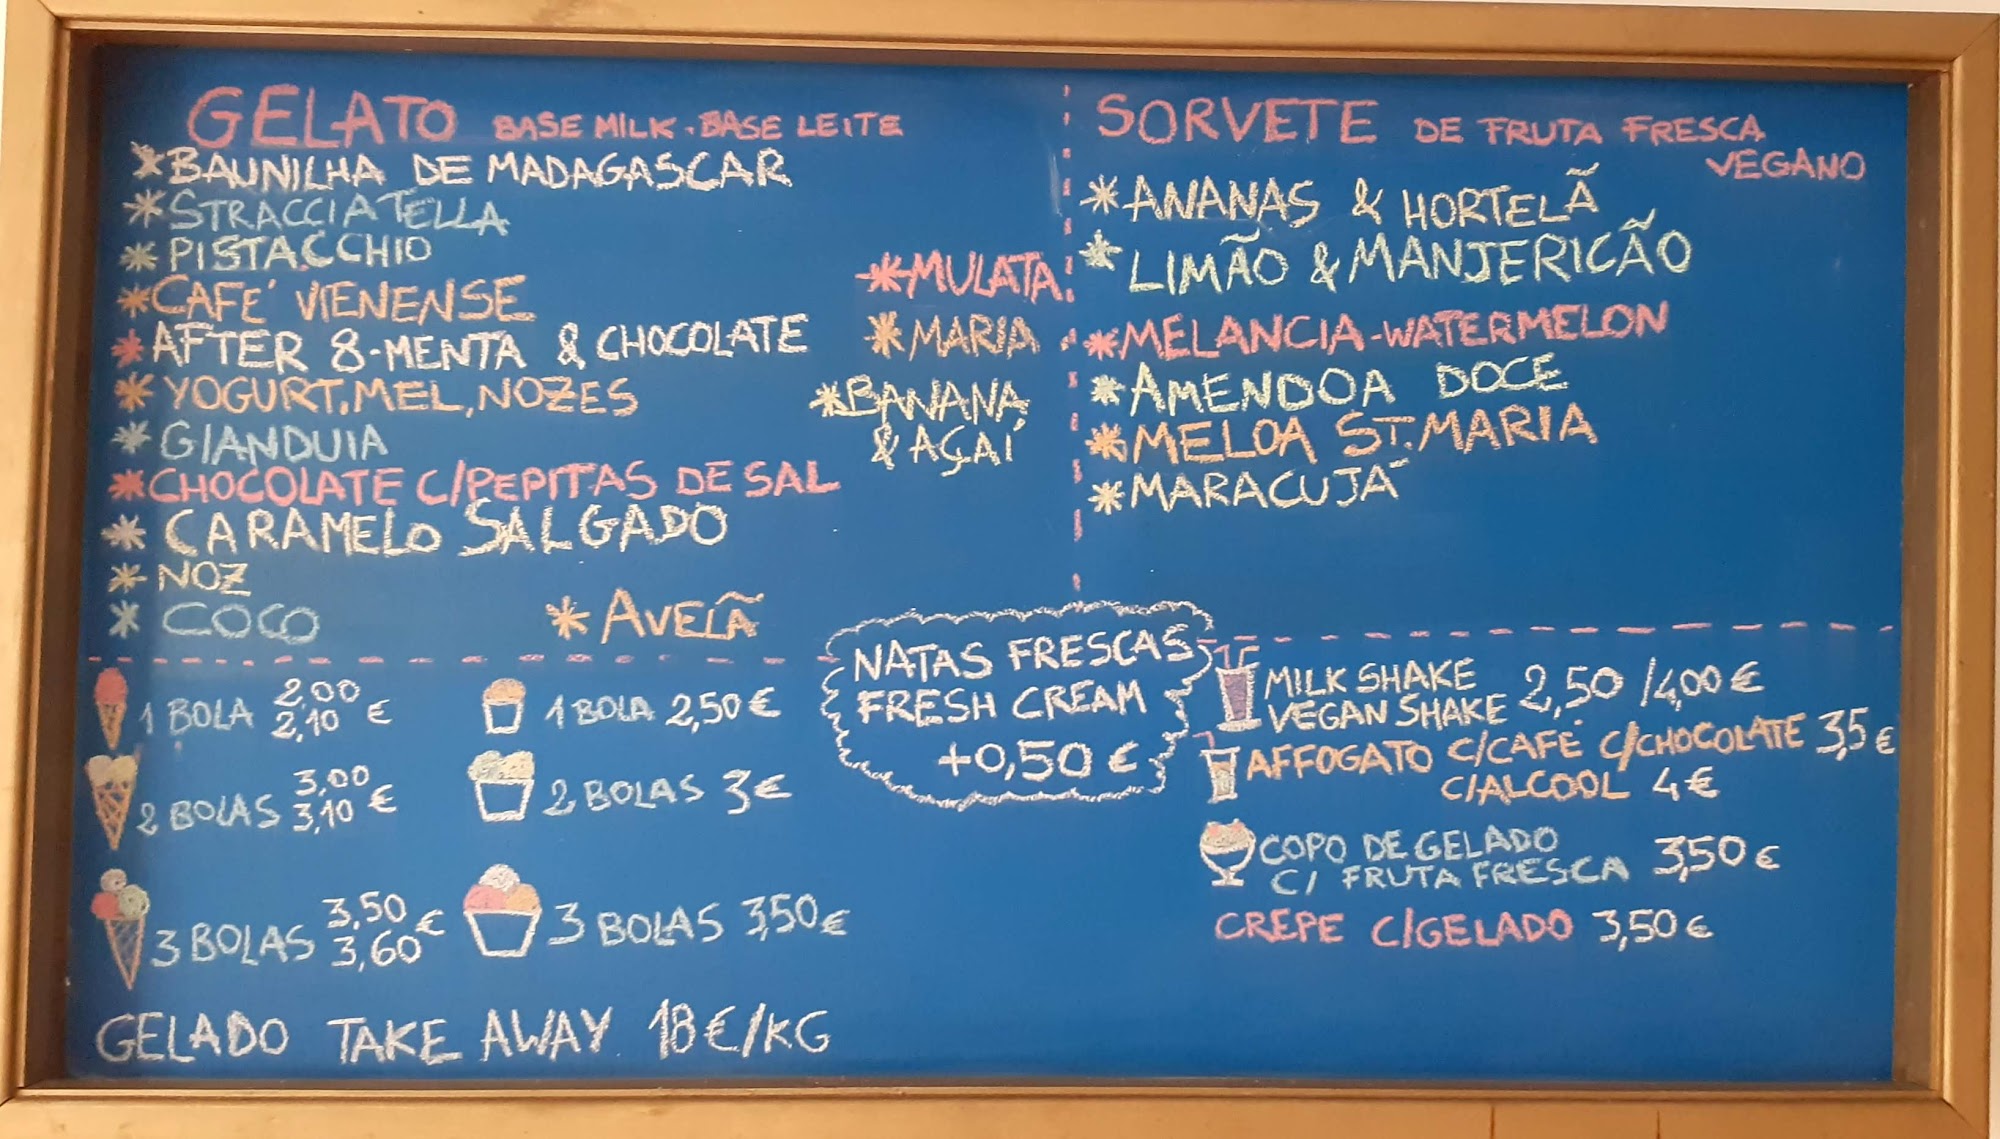 GELATO BASE MILK . BASE LEITE
*BAUNILHA DE MADAGASCAR
*STRACCIATELLA
*PISTACCHIO
*CAFE' VIENENSE
*AFTER 8-MENTA & CHOCOLATE
*YOGURT, MEL, NOZES
*GIANDUIA
*CHOCOLATE C/PEPITAS DE SAL
*CARAMELO SALGADO
*NOZ
*COCO
*AVELÃ
*MULATA
*MARIA
*BANANA
& AÇAÍ
SORVETE DE FRUTA FRESCA
VEGANO
*ANANAS & HORTELÃ
*LIMÃO & MANJERICÃO
*MELANCIA-WATERMELON
*AMENDOA DOCE
*MELOA ST. MARIA
*MARACUJÁ
1 BOLA 2,00
2,10 €
2 BOLAS 3,00
3,10 €
3 BOLAS 3,50
3,60 €
1 BOLA 2,50 €
2 BOLAS 3 €
3 BOLAS 3,50 €
GELADO TAKE AWAY 18€/KG
NATAS FRESCAS
FRESH CREAM
+0,50 €
MILK SHAKE
VEGAN SHAKE 2,50 /4,00 €
AFFOGATO C/CAFÉ C/CHOCOLATE 3,5 €
C/ALCOOL 4 €
COPO DE GELADO
C/ FRUTA FRESCA 3,50 €
CREPE C/GELADO 3,50 €